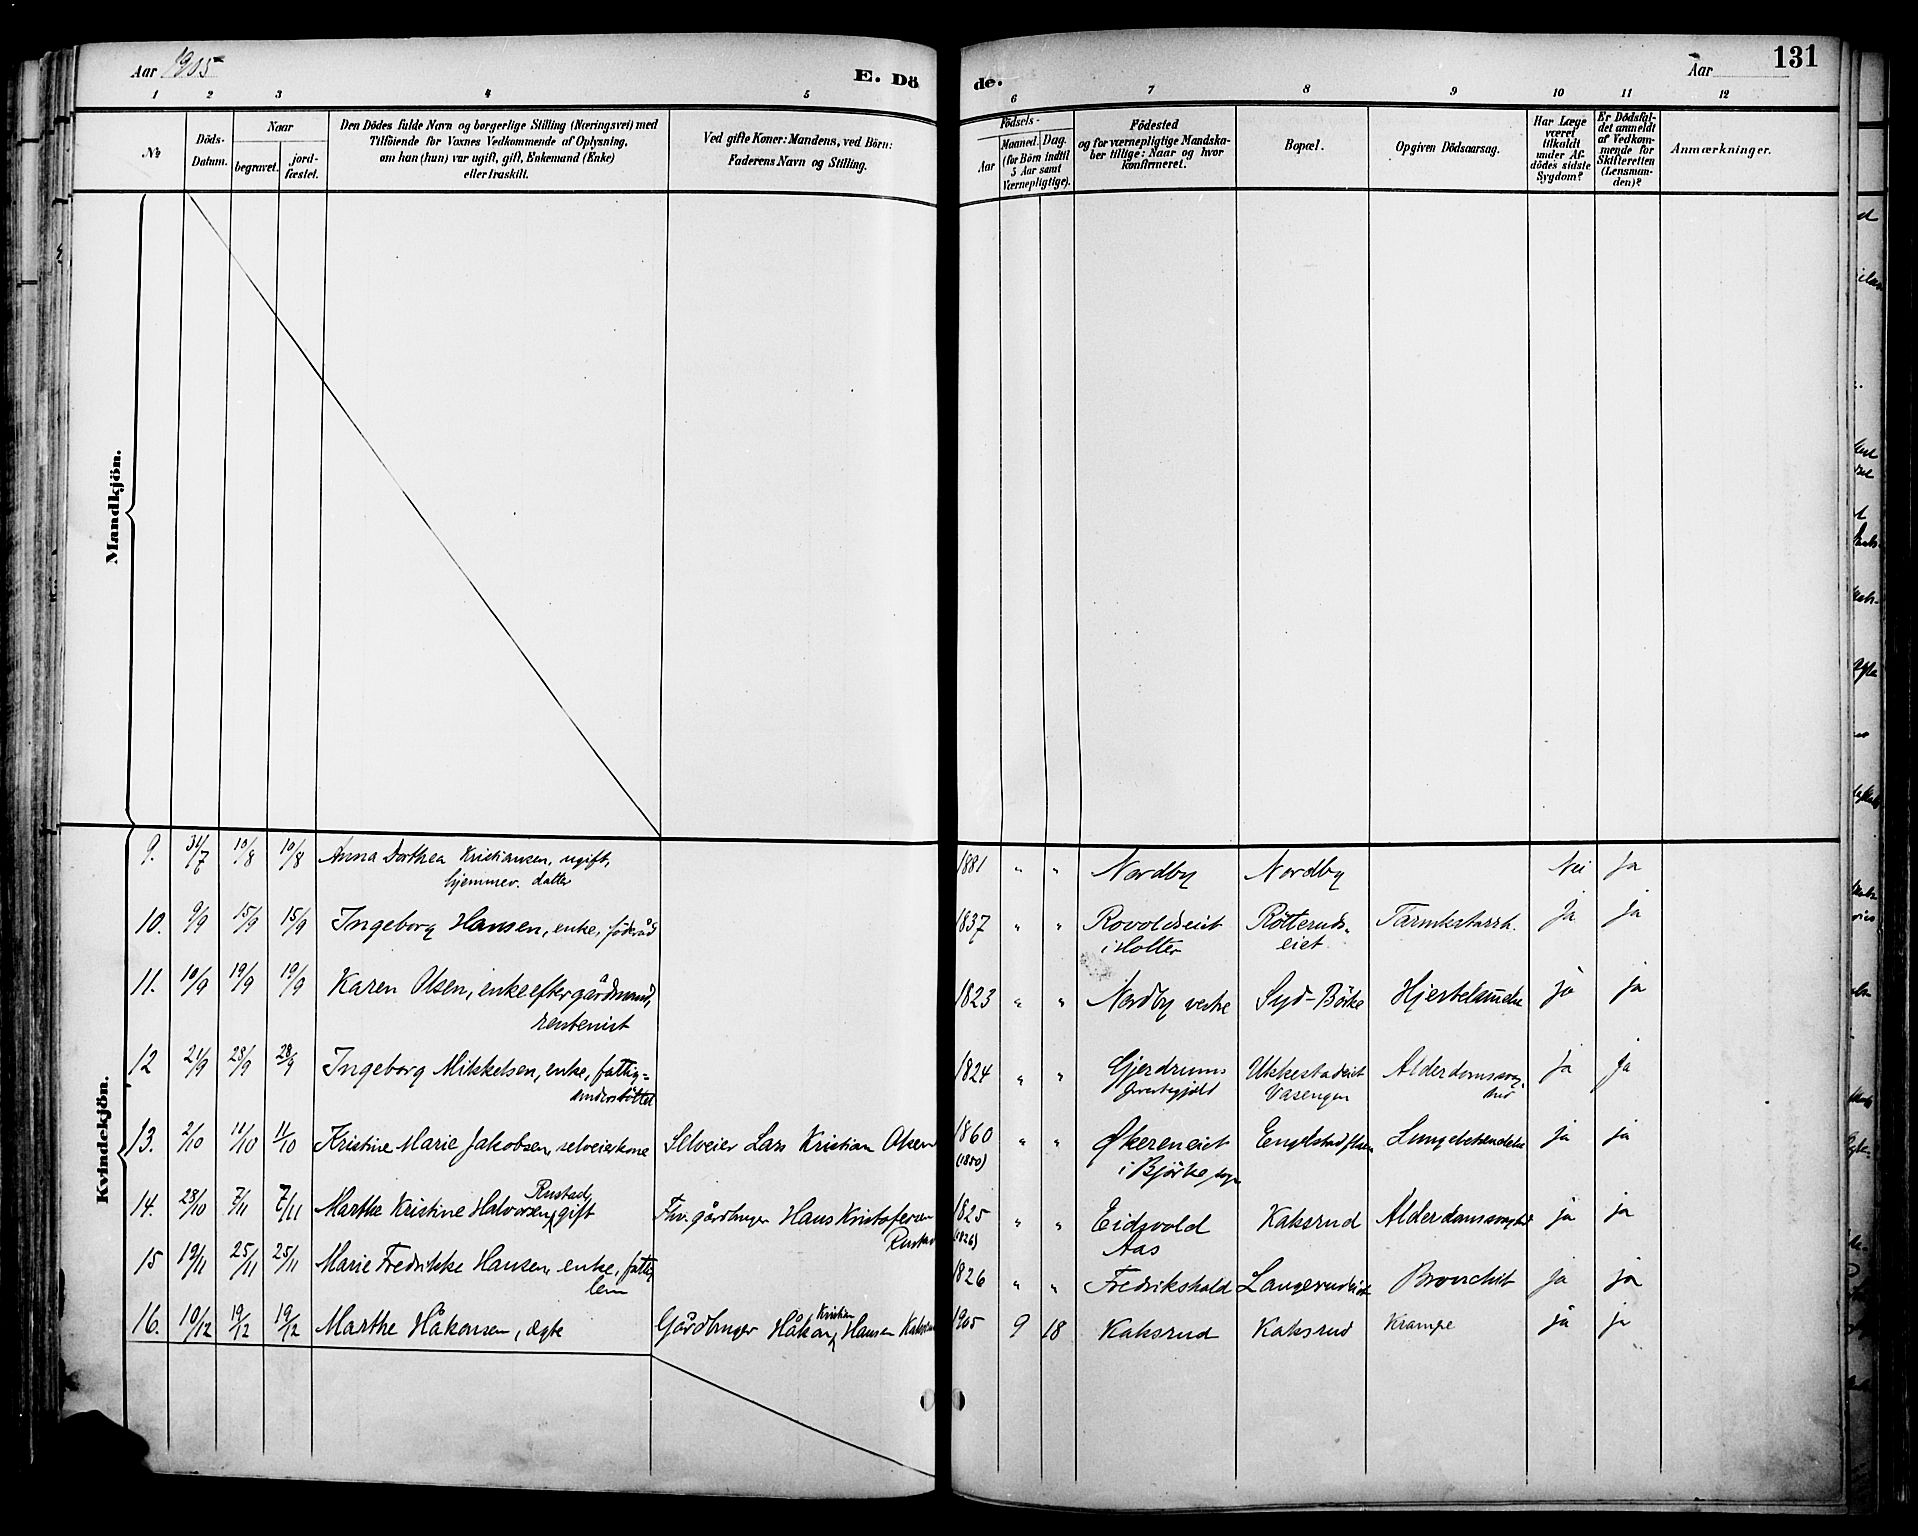 Aar 1905
E. Dö
de.
Aar
131
1 2 3 4 5
6 7 8 9 10 11 12
No
Döds-
Datum.
Naar
begravet.
jord-
fæstet.
Den Dödes fulde Navn og borgerlige Stilling (Næringsvei) med
Tilföiende for Voxnes Vedkommende af Oplysning,
om han (hun) var ugift, gift, Enkemand (Enke)
eller fraskilt.
Ved gifte Koner: Mandens, ved Börn:
Faderens Navn og Stilling.
Födsels-
Aar
Maaned. Dag.
(for Börn indtil
5 Aar samt
Værnepligtige).
Födested
og for værnepligtige Mandska-
ber tillige: Naar og hvor
konfirmeret.
Bopæl.
Opgiven Dödsaarsag.
Har Læge
været
tilkaldt
under Af-
dödes sidste
Sygdom?
Er Dödsfal-
det anmeldt
af Vedkom-
mende for
Skifteretten
(Lensman-
den)?
Anmærkninger.
Mandkjön.
Kvindekjön.
9. 31/7 10/8 10/8 Anna Dorthea Kristiansen, ugift, 1881 " " Nordby Nordby Nei Ja
hjemmev. datter
10. 9/9 15/9 15/9 Ingeborg Hansen, enke, föderåd 1837 " " Rovoldseiet Rötteruds- Ja Ja
i Holter eiet
11. 10/9 19/9 19/9 Karen Olsen, enke efter gårdmand, 1823 " " Nordby vestre Syd-Börke ja ja
rentenist
12 21/9 28/9 28/9 Ingeborg Mikkelsen, enke, fattig- 1824 " " Gjerdrums Ukkestadeiet Alderdomssvag- Ja Ja
understöttet Prestegjeld Vasengen hed
13. 2/10 11/10 11/10 Kristine Marie Jakobsen, selveierkone Selveier Lars Kristian Olsen 1860 " " Ökereneiet Lungebetændelse ja ja
(1850) i Björke sogn
Rustad,
14. 28/10 7/11 7/11 Marthe Kristine Halvorsen, gift Fhv. gårdbruger Hans Kristofersen 1825 " " Eidsvold Kaksrud Alderdomssvaghed ja ja
Rustad (1826) Aas
15 19/11 25/11 25/11 Marie Fredrikke Hansen, enke, fattig 1826 " " Fredrikshald Langerudeiet Bronchit ja ja
lem
Kristian
16. 10/12 19/12 19/12 Marthe Håkonsen, ægte Gårdbruger Håkon Hansen Kaksrud 1905 9 18 Kaksrud Kaksrud Krampe ja ja